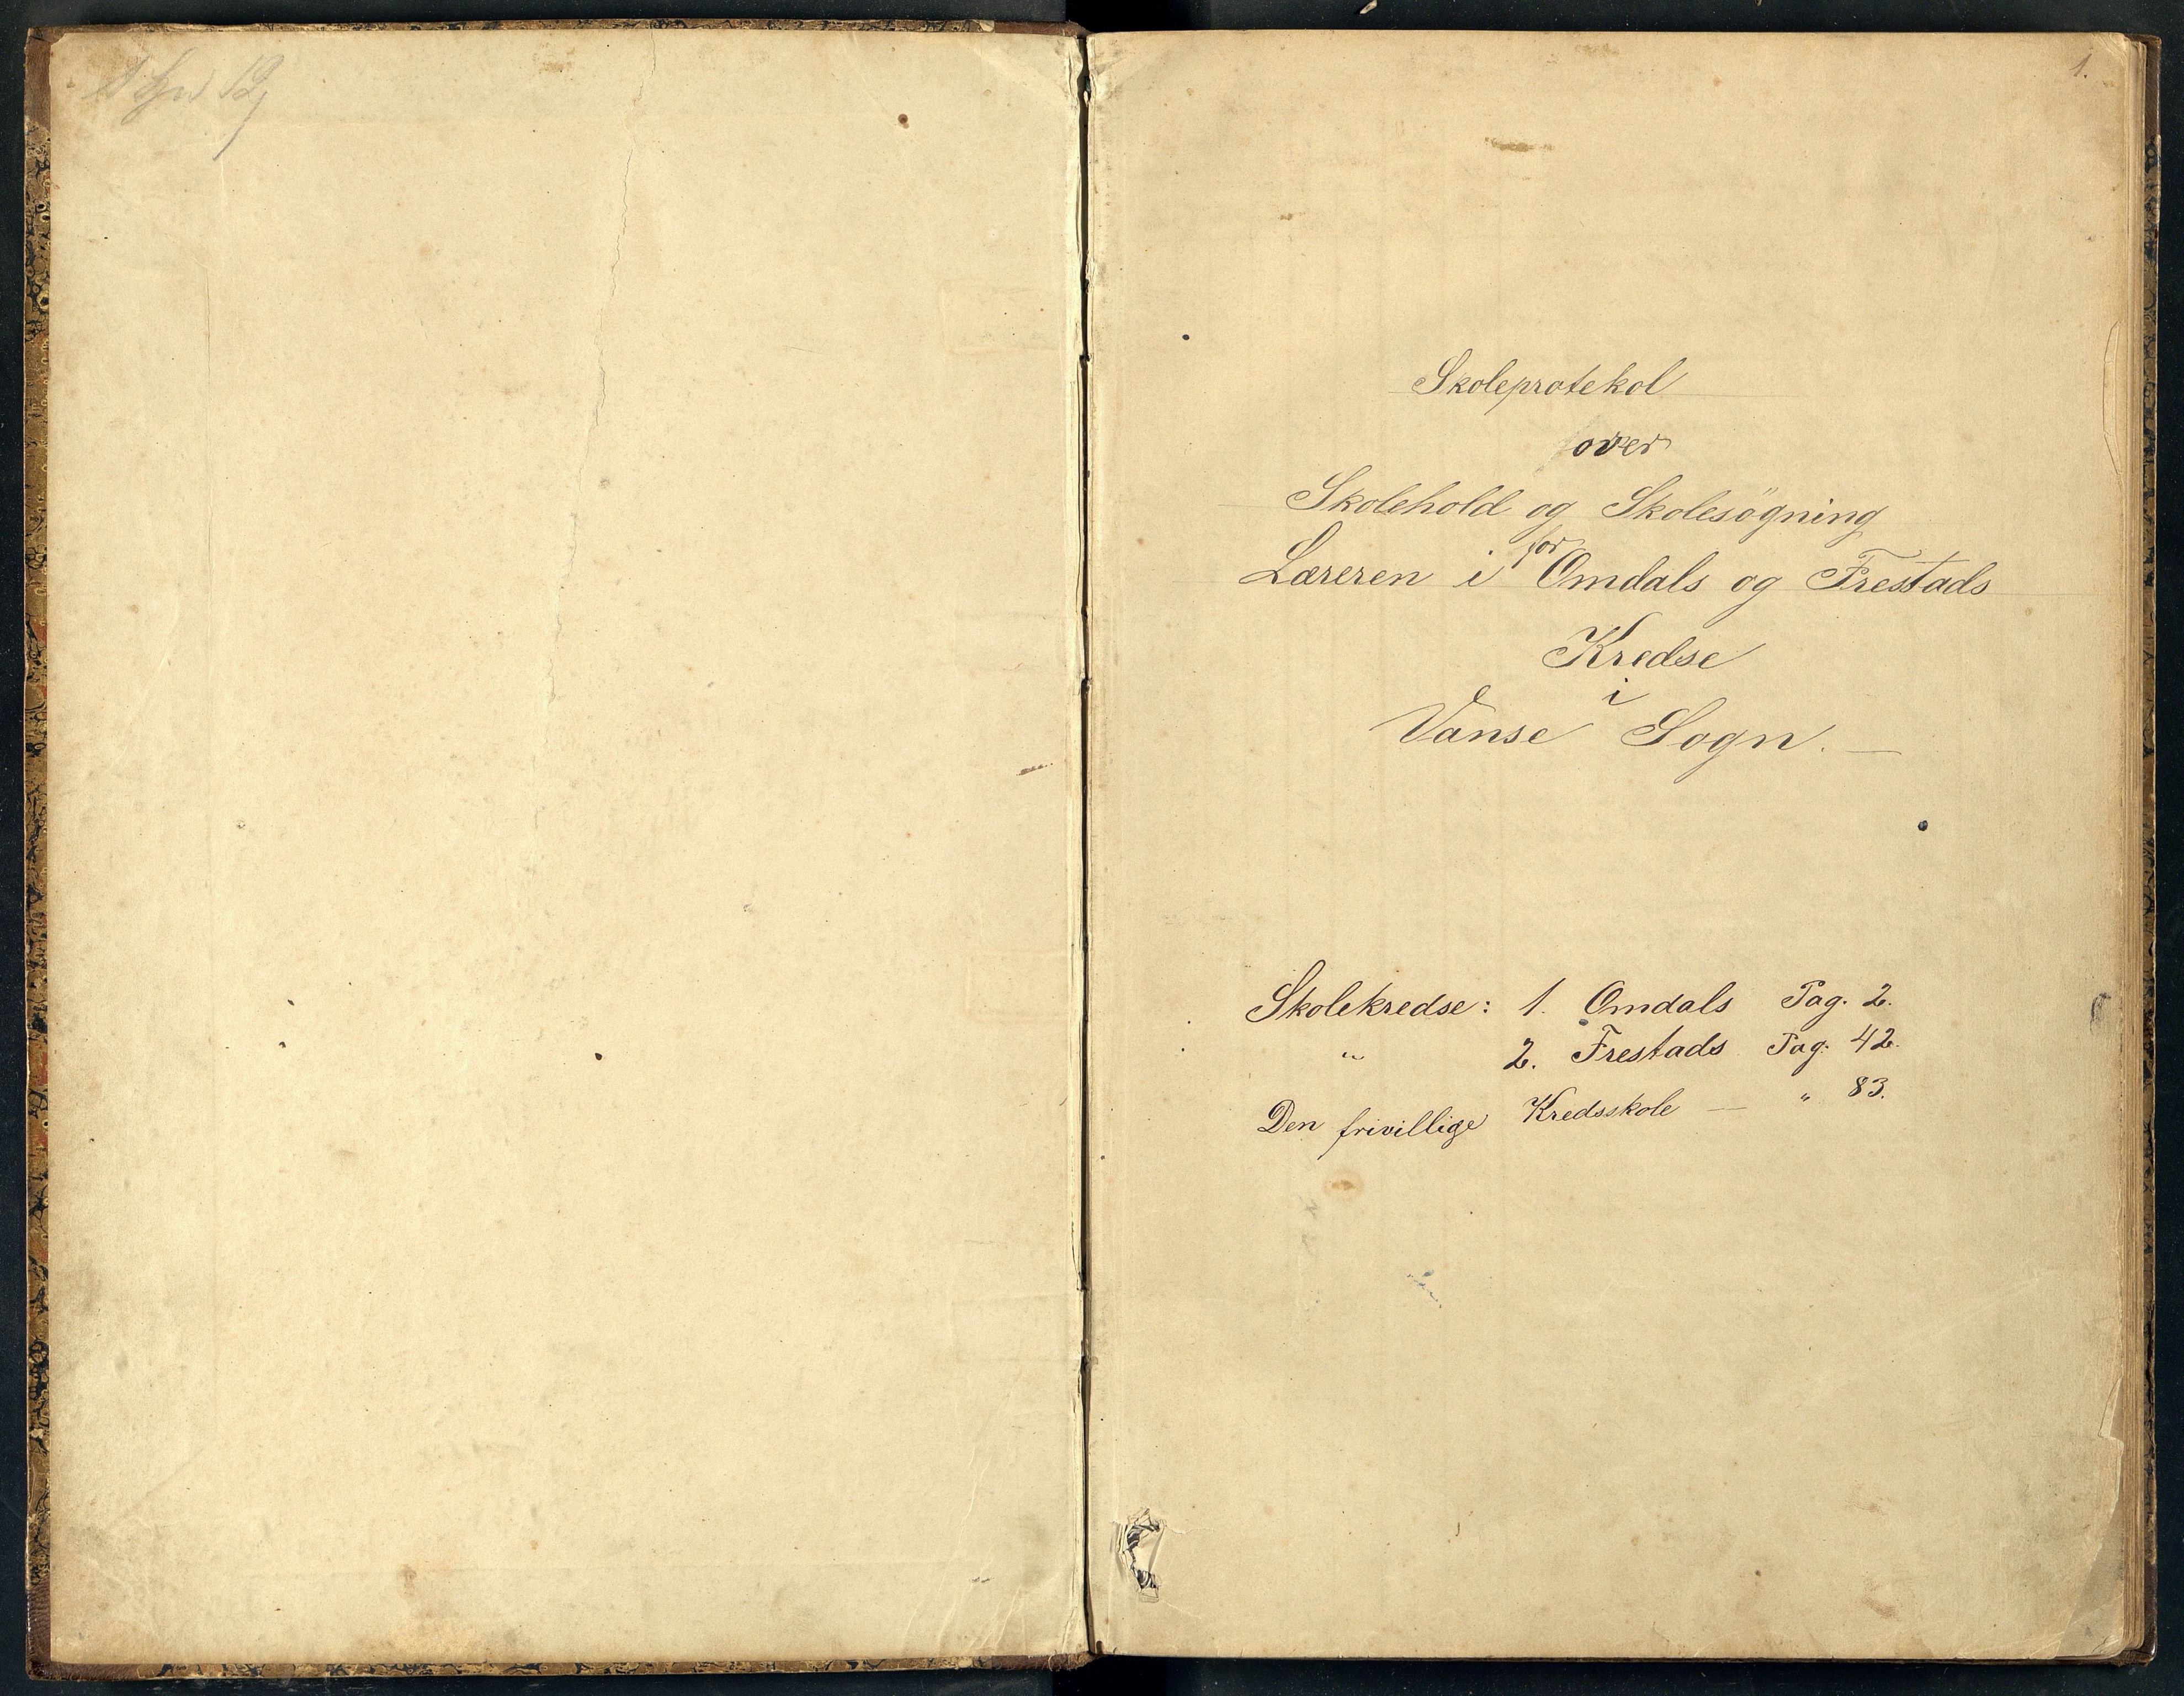 1.
Skoleprotokol
over
Skolehold og Skolesögning
for
Læreren i Omdals og Frestads
Kredse
i
Vanse Sogn. —
Skolekredse: 1. Omdals Pag. 2.
" 2. Frestads Pag. 42.
Den frivillige Kredsskole — " 83.